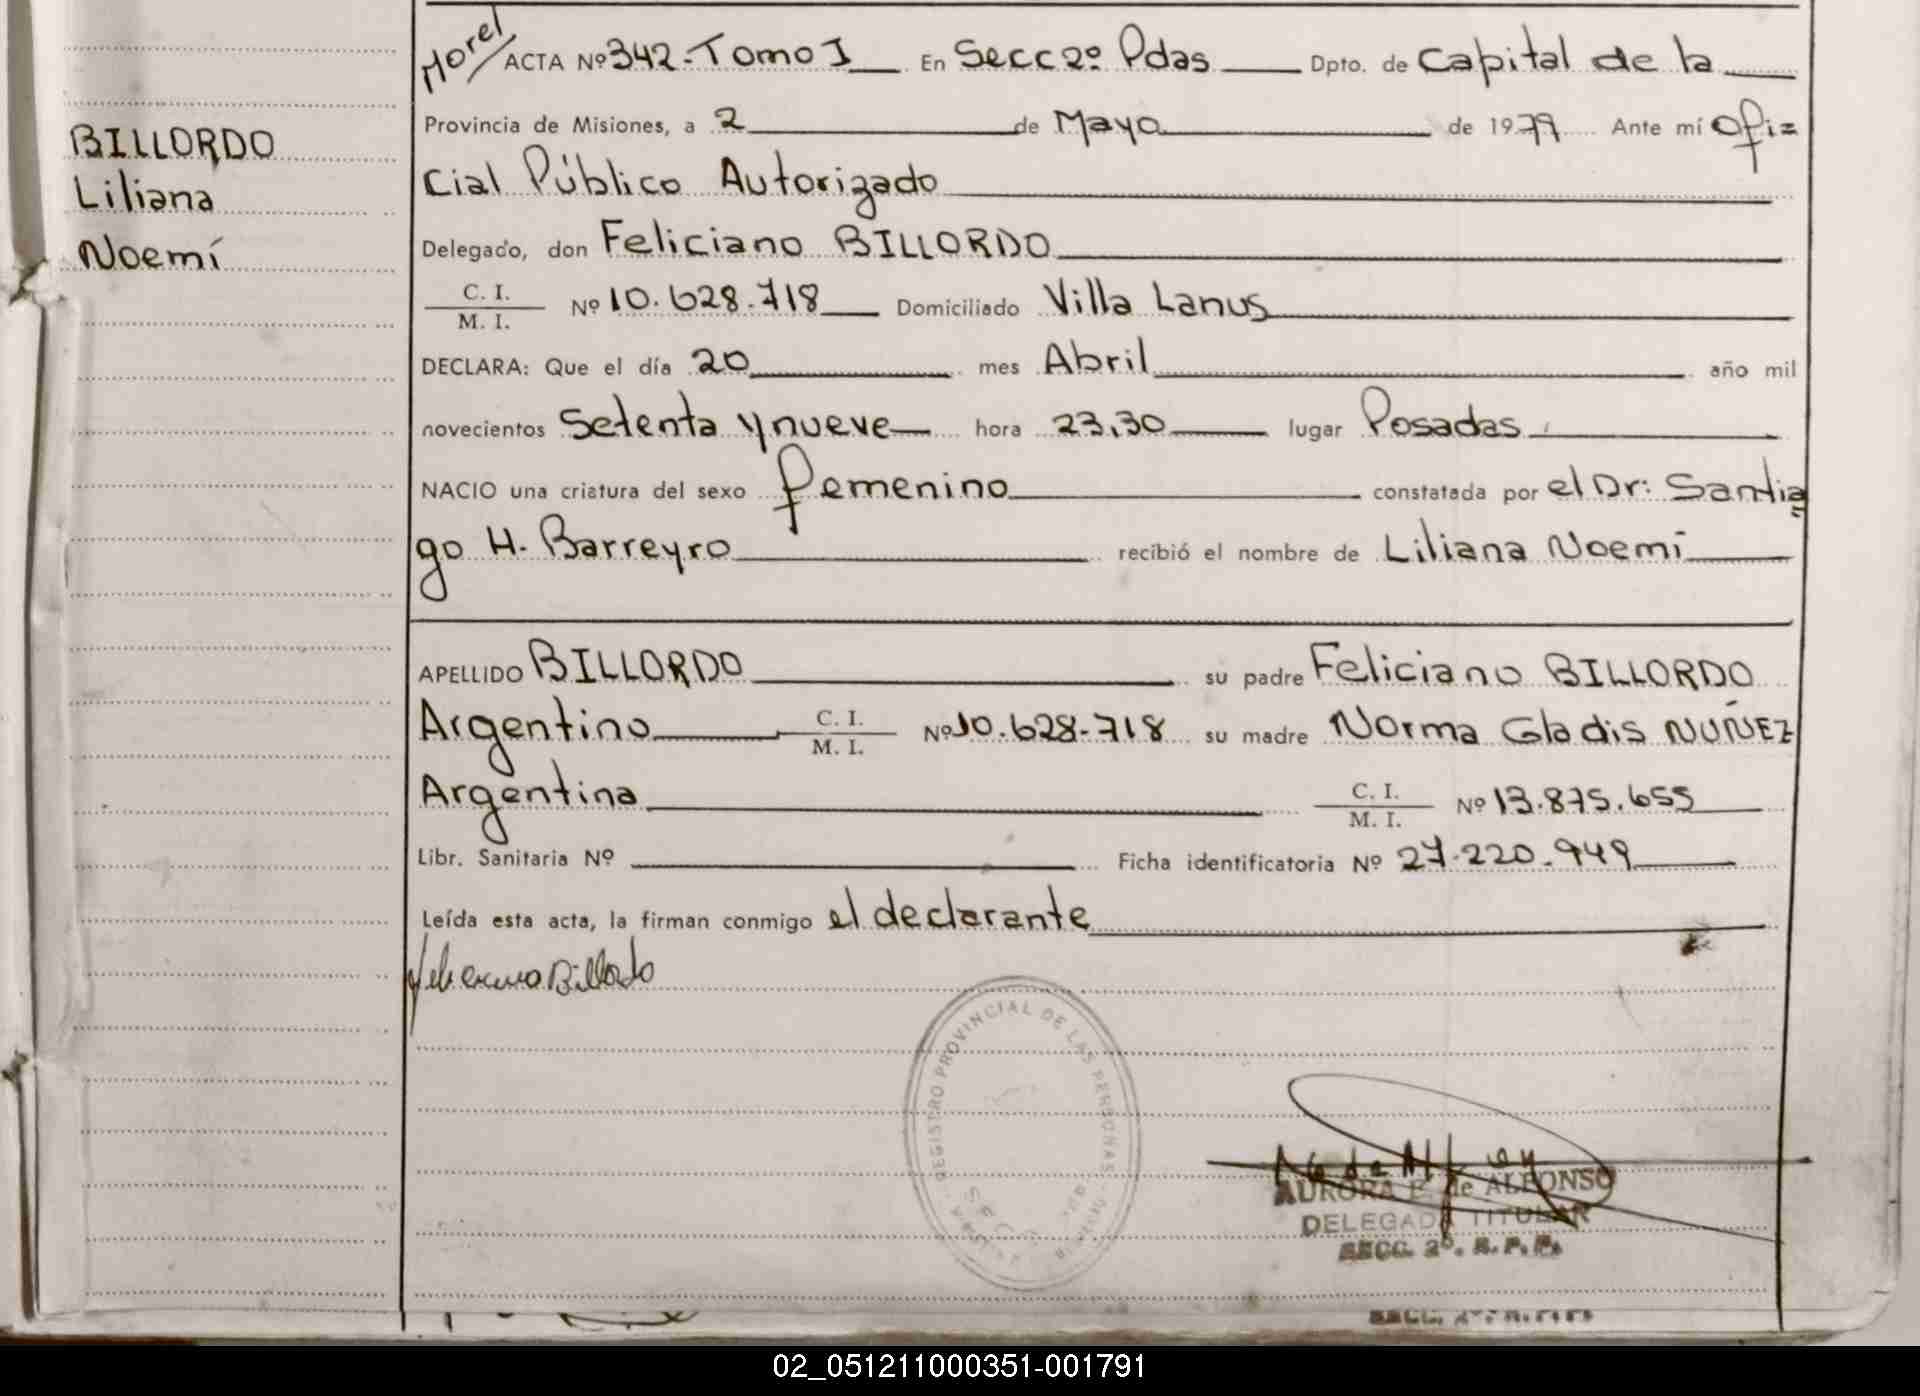 BILLORDO
Liliana
Noemí
Morel
ACTA Nº 342-Tomo I En Secc 2º Pdas Dpto. de Capital de la
Provincia de Misiones, a 2 de Mayo de 1979 Ante mí Ofi=
cial Público Autorizado
Delegado, don Feliciano BILLORDO
C. I.
M. I. Nº 10.628.718 Domiciliado Villa Lanus
DECLARA: Que el día 20 mes Abril año mil
novecientos Setenta y nueve hora 23,30 lugar Posadas
NACIO una criatura del sexo femenino constatada por el Dr: Santia=
go H. Barreyro recibió el nombre de Liliana Noemi
APELLIDO BILLORDO su padre Feliciano BILLORDO
Argentino C. I.
M. I. Nº 10.628-718 su madre Norma Gladis NUÑEZ
Argentina C. I.
M. I. Nº 13.875.655
Libr. Sanitaria Nº Ficha identificatoria Nº 27.220.949
Leída esta acta, la firman conmigo el declarante
Billordo
REGISTRO PROVINCIAL DE LAS PERSONAS
SECC.
AURORA E. de ALFONSO
DELEGADA TITULAR
SECC. 2º. R. P. P.
02_051211000351-001791